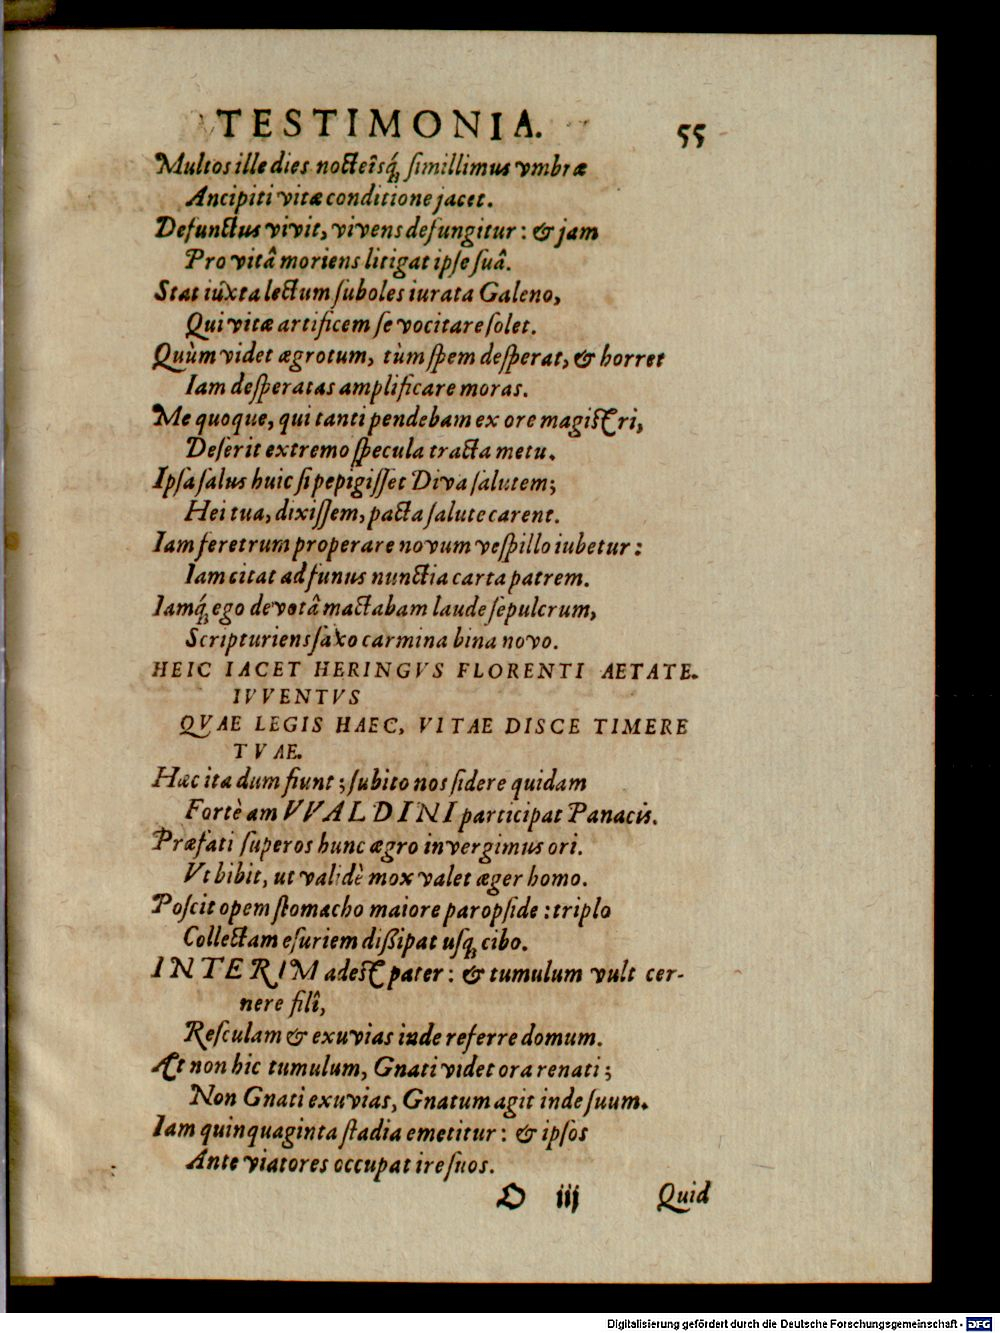 TESTIMONIA. 55
Multos ille dies nocteîsq́; ſimillimus vmbræ
Ancipiti vitæ conditione jacet.
Defunctus vivit, vivens defungitur: & jam
Pro vitâ moriens litigat ipſe ſuâ.
Stat iuxta lectum ſuboles iurata Galeno,
Qui vitæ artificem ſe vocitare ſolet.
Quùm videt ægrotum, tùm ſpem deſperat, & horret
Iam deſperatas amplificare moras.
Me quoque, qui tanti pendebam ex ore magiſtri,
Deſerit extremo ſpecula tracta metu.
Ipſa ſalus huic ſi pepigiſſet Diva ſalutem;
Hei tua, dixiſſem, pacta ſalute carent.
Iam feretrum properare novum veſpillo iubetur:
Iam citat ad funus nunctia carta patrem.
Iamq́; ego devotâ mactabam laude ſepulcrum,
Scripturiens ſaxo carmina bina novo.
HEIC IACET HERINGVS FLORENTI AETATE.
IVVENTVS
QVAE LEGIS HAEC, VITAE DISCE TIMERE
TVAE.
Hæc ita dum fiunt; ſubito nos ſidere quidam
Fortè am VVALDINI participat Panacis.
Præfati ſuperos hunc ægro invergimus ori.
Vt bibit, ut validè mox valet æger homo.
Poſcit opem ſtomacho maiore paropſide: triplo
Collectam eſuriem dißipat uſq; cibo.
INTERIM adeſt pater: & tumulum vult cer-
nere filî,
Reſculam & exuvias inde referre domum.
At non hic tumulum, Gnati videt ora renati;
Non Gnati exuvias, Gnatum agit inde ſuum.
Iam quinquaginta ſtadia emetitur: & ipſos
Ante viatores occupat ire ſuos.
D iij Quid
Digitalisierung gefördert durch die Deutsche Forschungsgemeinschaft - DFG